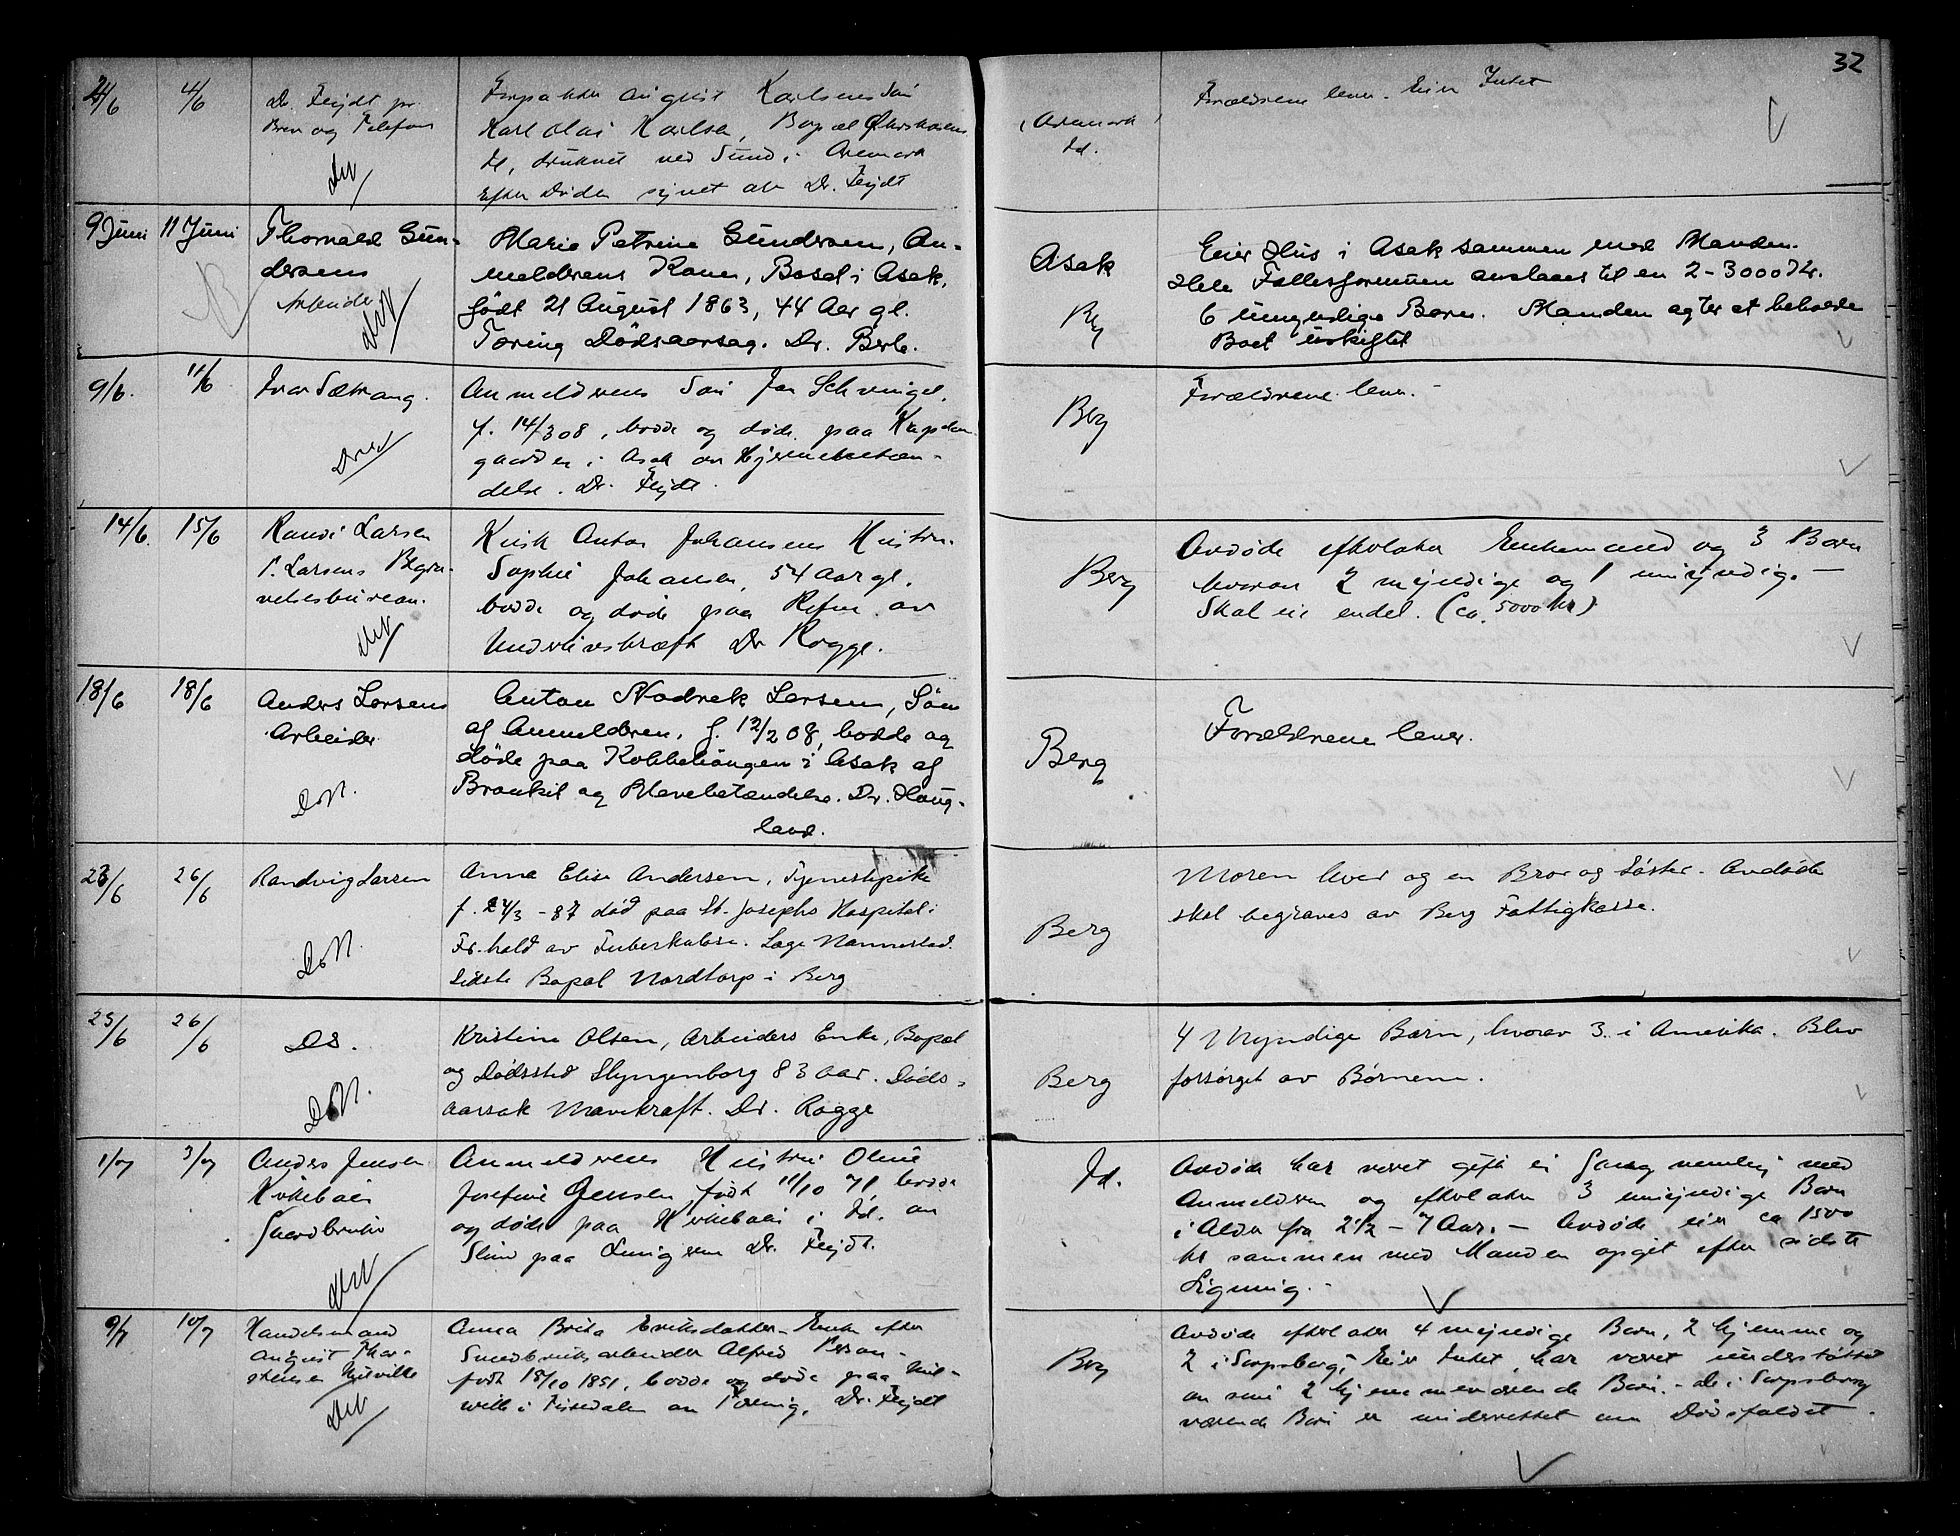 32
2/6 4/6 Dr. Fejdt pr.
Brev og Telefon
Forpakter August Karlsens Søn
Karl Olai Karlsen, Bopæl
druknet ved Sund i Aremark
Efter Døden synet av Dr. Fejdt
(Aremark)
Id.
Forældrene lever. Eier Intet
9 Juni 11 Juni Thorvald Gun-
dersens
Arbeider
Marie Petrine Gundersen, An-
melderens Kone, Bosat i Asak,
født 21 August 1863, 44 Aar gl.
Tæring Dødsaarsag. Dr. Berle.
Asak
Berg
Eier Hus i Asak sammen med Manden.
Hele Fællesformuen anslaaes til en 2-3000 Kr.
6 umyndige Børn. Manden agter at beholde
Boet uskiftet
9/6. 11/6 Ivar Sætrang.
Anmelderens Søn Jan Schwingel,
f. 14/3 08, bodde og døde paa
gaarden i Asak av Hjernebetæn-
delse. Dr. Fejdt.
Berg
Forældrene lever. -
14/6. 15/6 Randi Larsen
P. Larsens Begra-
velsesbureau.
Kusk Anton Johansens Hustru
Sophie Johansen, 54 Aar gl.
bodde og døde paa Refne av
Underlivskræft Dr. Rogge.
Berg
Avdøde efterlater Enkemand og 3 Børn
hvorav 2 myndige og 1 umyndig. -
Skal eie endel. (ca. 5000 kr)
18/6 18/6 Anders Larsens
Arbeider
D.N.
Anton Nodrek Larsen, Søn
af Anmelderen, f. 12/2 08, bodde og
døde paa Kobbelvangen i Asak af
Bronkit og Mavebetændelse. Dr. Haug-
land.
Berg
Forældrene lever.
23/6 26/6 Randvig Larsen
D.N.
Anna Elise Andersen, Tjenestepike
f. 24/3 - 87 død paa St. Josephs Hospital i
Fr.hald av Tuberkulose. Læge Nannestad.
Sidste Bopæl Nordtorp i Berg
Berg
Moren lever og en Bror og Søster. Avdøde
skal begraves av Berg Fattigkasse.
25/6 26/6 DS.
D.N.
Kristine Olsen, Arbeiders Enke, Bopæl
og Dødssted Slyngenborg 83 Aar. Døds-
aarsak Mavekræft. Dr. Rogge
Berg
4 Myndige Børn, hvorav 3 i Amerika. Blev
forsørget av Børnene.
1/7 3/7 Anders Jensen
Kirkebøei
Gaardbruker
Anmelderens Hustru Oline
Josefine Jensen, født 11/10 71 bodde
og døde paa Kirkebøei i Id. av
Slim paa Lungerne Dr. Fejdt.
Id.
Avdøde har været gift en Gang nemlig med
Anmelderen og efterlater 3 umyndige Børn
i Alder fra 2 1/2 - 7 Aar. - Avdøde eier ca 1500
kr sammen med Manden opgit efter sidste
Ligning. -
9/7 10/7 Handelsmand
August Thor-
stensen Hutville
Anna Brita Eriksdatter - Enke efter
Smedbruksarbeider Alfred Person -
født 15/10 1851, bodde og døde paa Hut-
ville i Tistedalen av Tæring, Dr. Fejdt
Berg
Avdøde efterlater 4 myndige Børn, 2 hjemme og
2 i Sarpsborg, Eier Intet, har været understøttet
av sine 2 hjemmeværende Børn. - De i Sarpsborg
værende Børn er underrettet om Dødsfaldet.